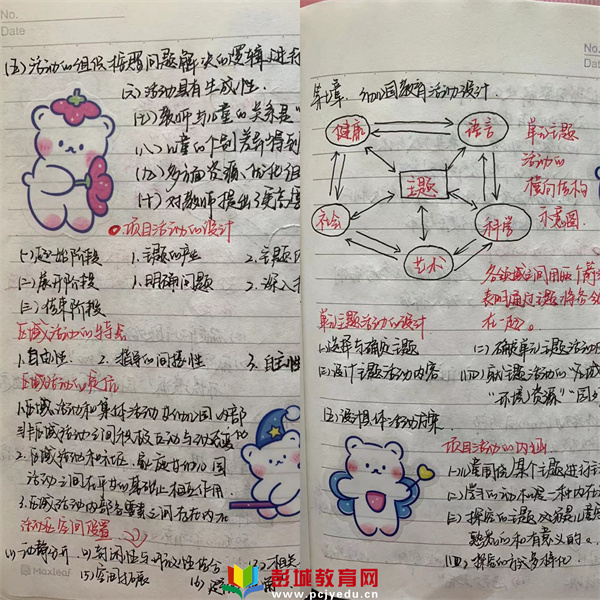 No.
Date
(五)活动的组织按照问题解决的逻辑进行
(六)活动具有生成性.
(七)教师与儿童的关系是"
(八)儿童的个别差异得到
(九)多方面资源、优化组
(十)对教师提出了更高
项目活动的设计
(一)起始阶段 1、主题的产生 2、主题
(二)展开阶段 1、明确问题 2、深入
(三)结束阶段
区域活动的特点
1.自由性. 2、指导的间接性 3、自主性
区域活动的
1.区域活动和集体活动 幼儿园内部
各区域活动之间积极互动与
2.区域活动和社区、家庭 幼儿园
活动之间在平等的基础上相互作用.
3.区域活动内部各要素之间存在内在
活动区空间设置
(1)动静分开 (2)封闭性与开放性结合 (3)相关
(5)空间拓展 (6)
Maxleaf
No.
Date
第 章. 幼儿园教育活动设计.
健康
语言
主题
社会
科学
艺术
单元主题
活动的
横向结构
示意图.
各领域之间用 个箭
表明通过主题将各
在一起。
单元主题活动的设计
(一)选择与确定主题 (二)确定单元主题活动
(三)设计主题活动内容 (四)就主题活动的"
"环境资源"
(五)设想具体活动方案.
项目活动的
(一)儿童围绕某个主题进行
(二)学习的动机是一种内在
(三)探究的主题 是儿童
熟悉的和有意义的.
(四)探究的形式多样化.
彭城教育网
www.pcjyedu.cn